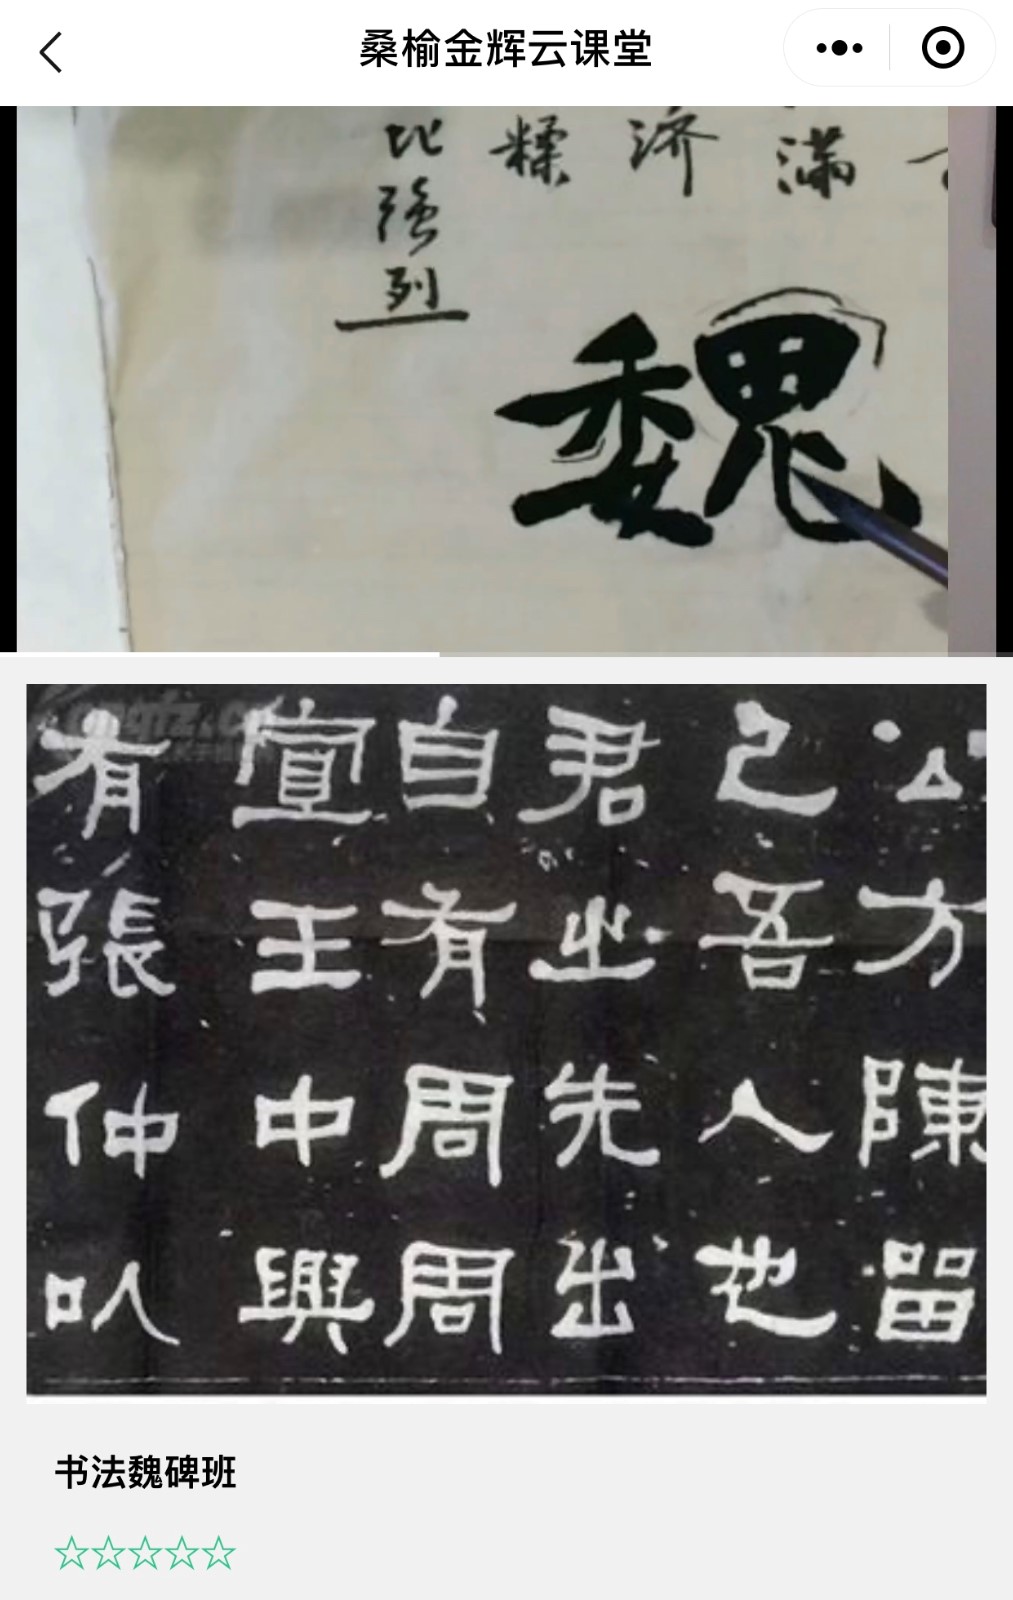 桑榆金辉云课堂
满
济
糅
比强列
魏
公方陳留
己吾人也
君之先出
自有周周
宣王中興
有張仲以
书法魏碑班